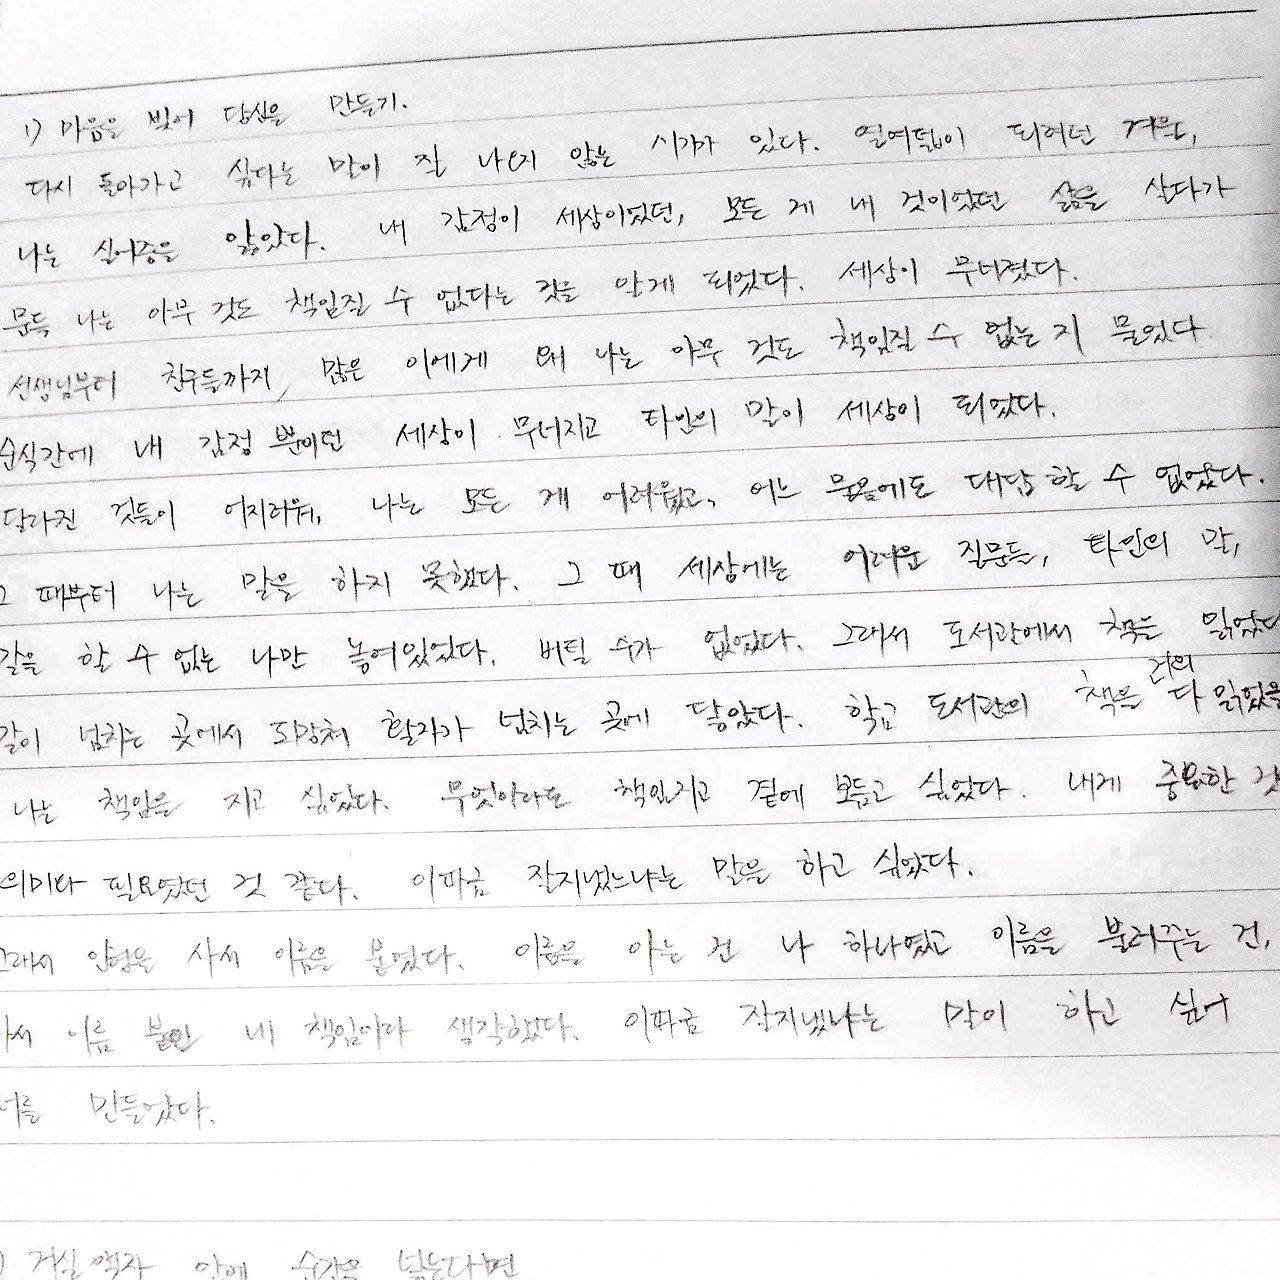 1) 마음을 빚어 당신을 만들기.
다시 돌아가고 싶다는 말이 잘 나오지 않는 시기가 있다. 열여덟이 되려던 겨울,
나는 실어증을 앓았다. 내 감정이 세상이었던, 모든 게 내 것이었던 삶을 살다가
문득 나는 아무 것도 책임질 수 없다는 것을 알게 되었다. 세상이 무너졌다.
선생님부터 친구들까지, 많은 이에게 왜 나는 아무 것도 책임질 수 없는 지 물었다
순식간에 내 감정 뿐이던 세상이 무너지고 타인의 말이 세상이 되었다.
달라진 것들이 어지러워, 나는 모든 게 어려웠고, 어느 물음에도 대답 할 수 없었다.
그 때부터 나는 말을 하지 못했다. 그 때 세상에는 어려운 질문들, 타인의 말,
말을 할 수 없는 나만 놓여있었다. 버틸 수가 없었다. 그래서 도서관에서 책을 읽었다
말이 넘치는 곳에서 도망쳐 활자가 넘치는 곳에 닿았다. 학교 도서관의 책을 거의 다 읽었을
나는 책임을 지고 싶었다. 무엇이라도 책임지고 곁에 보듬고 싶었다. 내게 중요한 것
의미다 필요였던 것 같다. 이따금 잘지냈느냐는 말을 하고 싶었다.
그래서 인형을 사서 이름을 붙였다. 이름을 아는 건 나 하나였고 이름을 불러주는 건,
이름 붙인 내 책임이라 생각했다. 이따금 잘지냈냐는 말이 하고 싶어
너를 만들었다.
) 거실 액자 안에 순간을 넣는다면